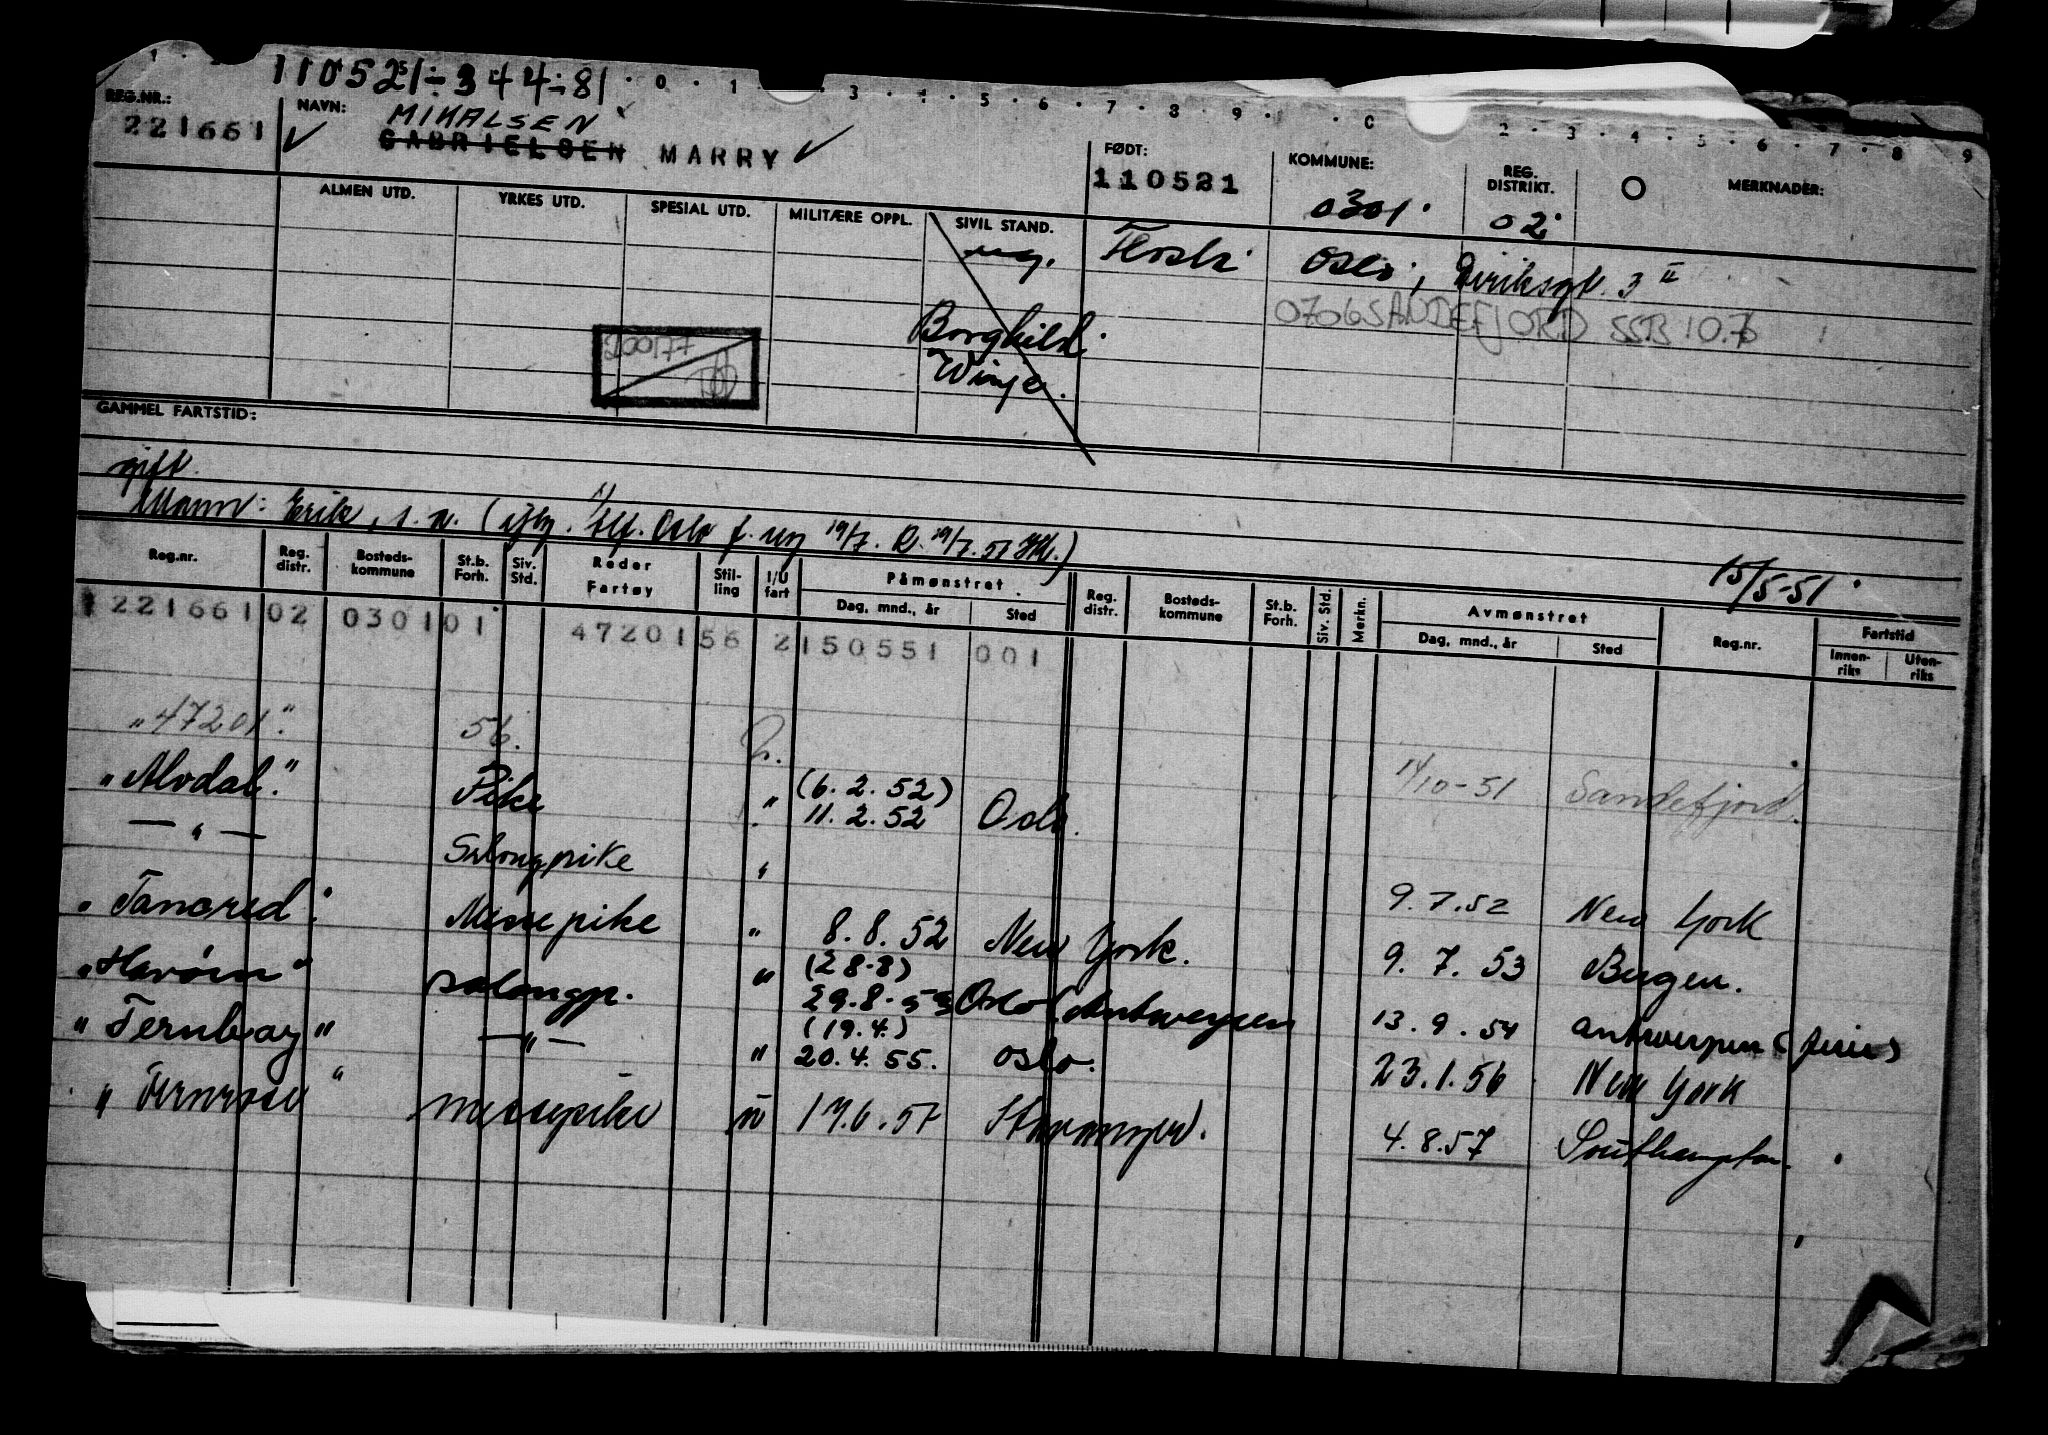 110521÷344÷81 · 0 · 1 · 3 · 4 · 5 · 6 · 7 · 8 · 9 · C 2 · 3 · 4 · 5 · 6 · 7 · 8 9
REG.NR.: NAVN: MIKALSEN
221661 ✓ GABRIELSEN MARRY ✓ FØDT: 110521 KOMMUNE: 0301 REG. DISTRIKT. 02 O MERKNADER:
ALMEN UTD. YRKES UTD. SPESIAL UTD. MILITÆRE OPPL. SIVIL STAND.
ug. Norsk. Oslo, Diriksgt. 3 II
0706 SANDEFJORD SSB 10.76
Borghild
Winge.
GAMMEL FARTSTID:
gift.
Mann: Erik, s. a. Oslo 19/7. 19/7. 51
15/5-51.
Reg.nr. Reg. distr. Bosteds- kommune St.b. Forh. Siv. Std. Reder Fartøy Stil- ling I/U fart Påmønstret Dag, mnd., år Sted Reg. distr. Bosteds- kommune St.b. Forh. Siv. Std. Merkn. Avmønstret Dag, mnd., år Sted Reg.nr. Fartstid Innen- riks Uten- riks
221661 02 0301 01 47201 56 2 150551 001
"47201". 56. 2. 14/10-51 Sandefjord.
"Alvdal". Pike " (6.2.52) 11.2.52 Oslo.
— " — Salongpike " 9.7.52 New York
"Tancred". Messepike " 8.8.52 New York. 9.7.53 Bergen.
"Havörn" salongp. " (28.8) 29.8.53 Oslo (Antwerpen 13.9.54 Antwerpen (ferie)
"Fernbay" — " — " (19.4.) 20.4.55. Oslo. 23.1.56 New York
"Fernrose" messepike 17.6.57 Stavanger. 4.8.57 Southampton.